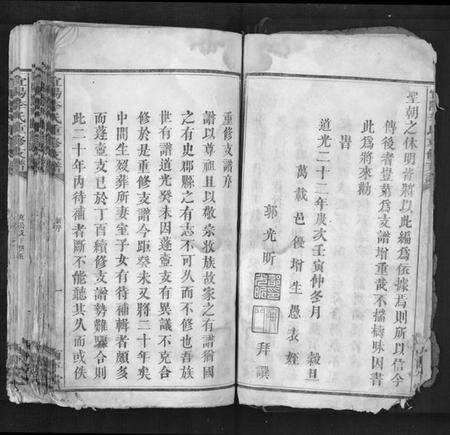 聖朝之休明者將以此編爲依據焉則所以信今
傳後者豈第爲支譜增重哉不揣檮昧因書
此爲將來勸
旹
道光二十二年歲次壬寅仲冬月 穀旦
萬載邑後增生愚表姪
郭光昕 拜譔
重修支譜序
譜以尊祖且以敬宗收族故家之有譜猶國
之有史郡縣之有志不可久而不修也吾族
世有譜道光癸未因蓬壹支有異議不克合
修於是重修支譜今距癸未又將二十年矣
中間生歿葬所妻室子女有待補輯者頗多
而蓬壹支已於丁百續修支譜勢難驟合則
此二十年內待補者斷不能聽其久而或佚
宜陽李氏重修支譜
序
一